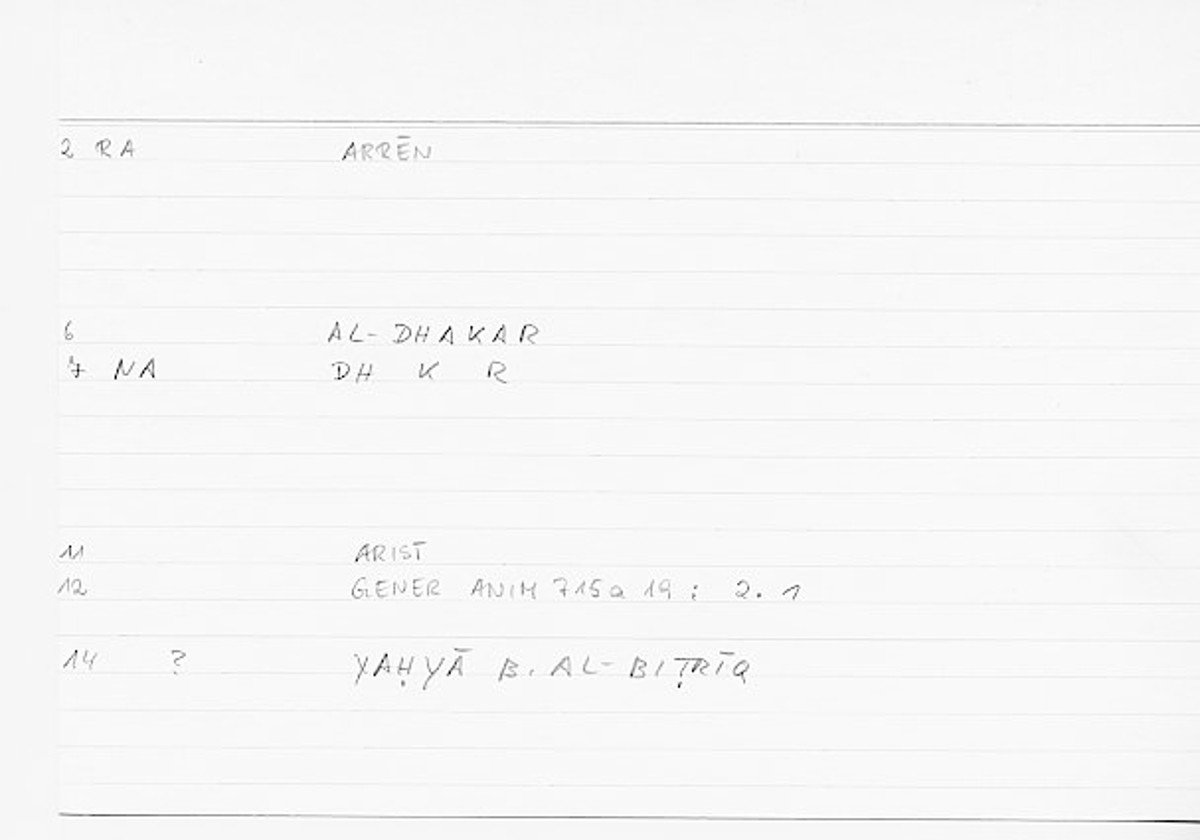 2 RA ARRĒN
6 AL-DHAKAR
7 NA DH K R
11 ARIST
12 GENER ANIM 715a 19 : 2. 1
14 ? YAḤYĀ B. AL-BIṬRĪQ